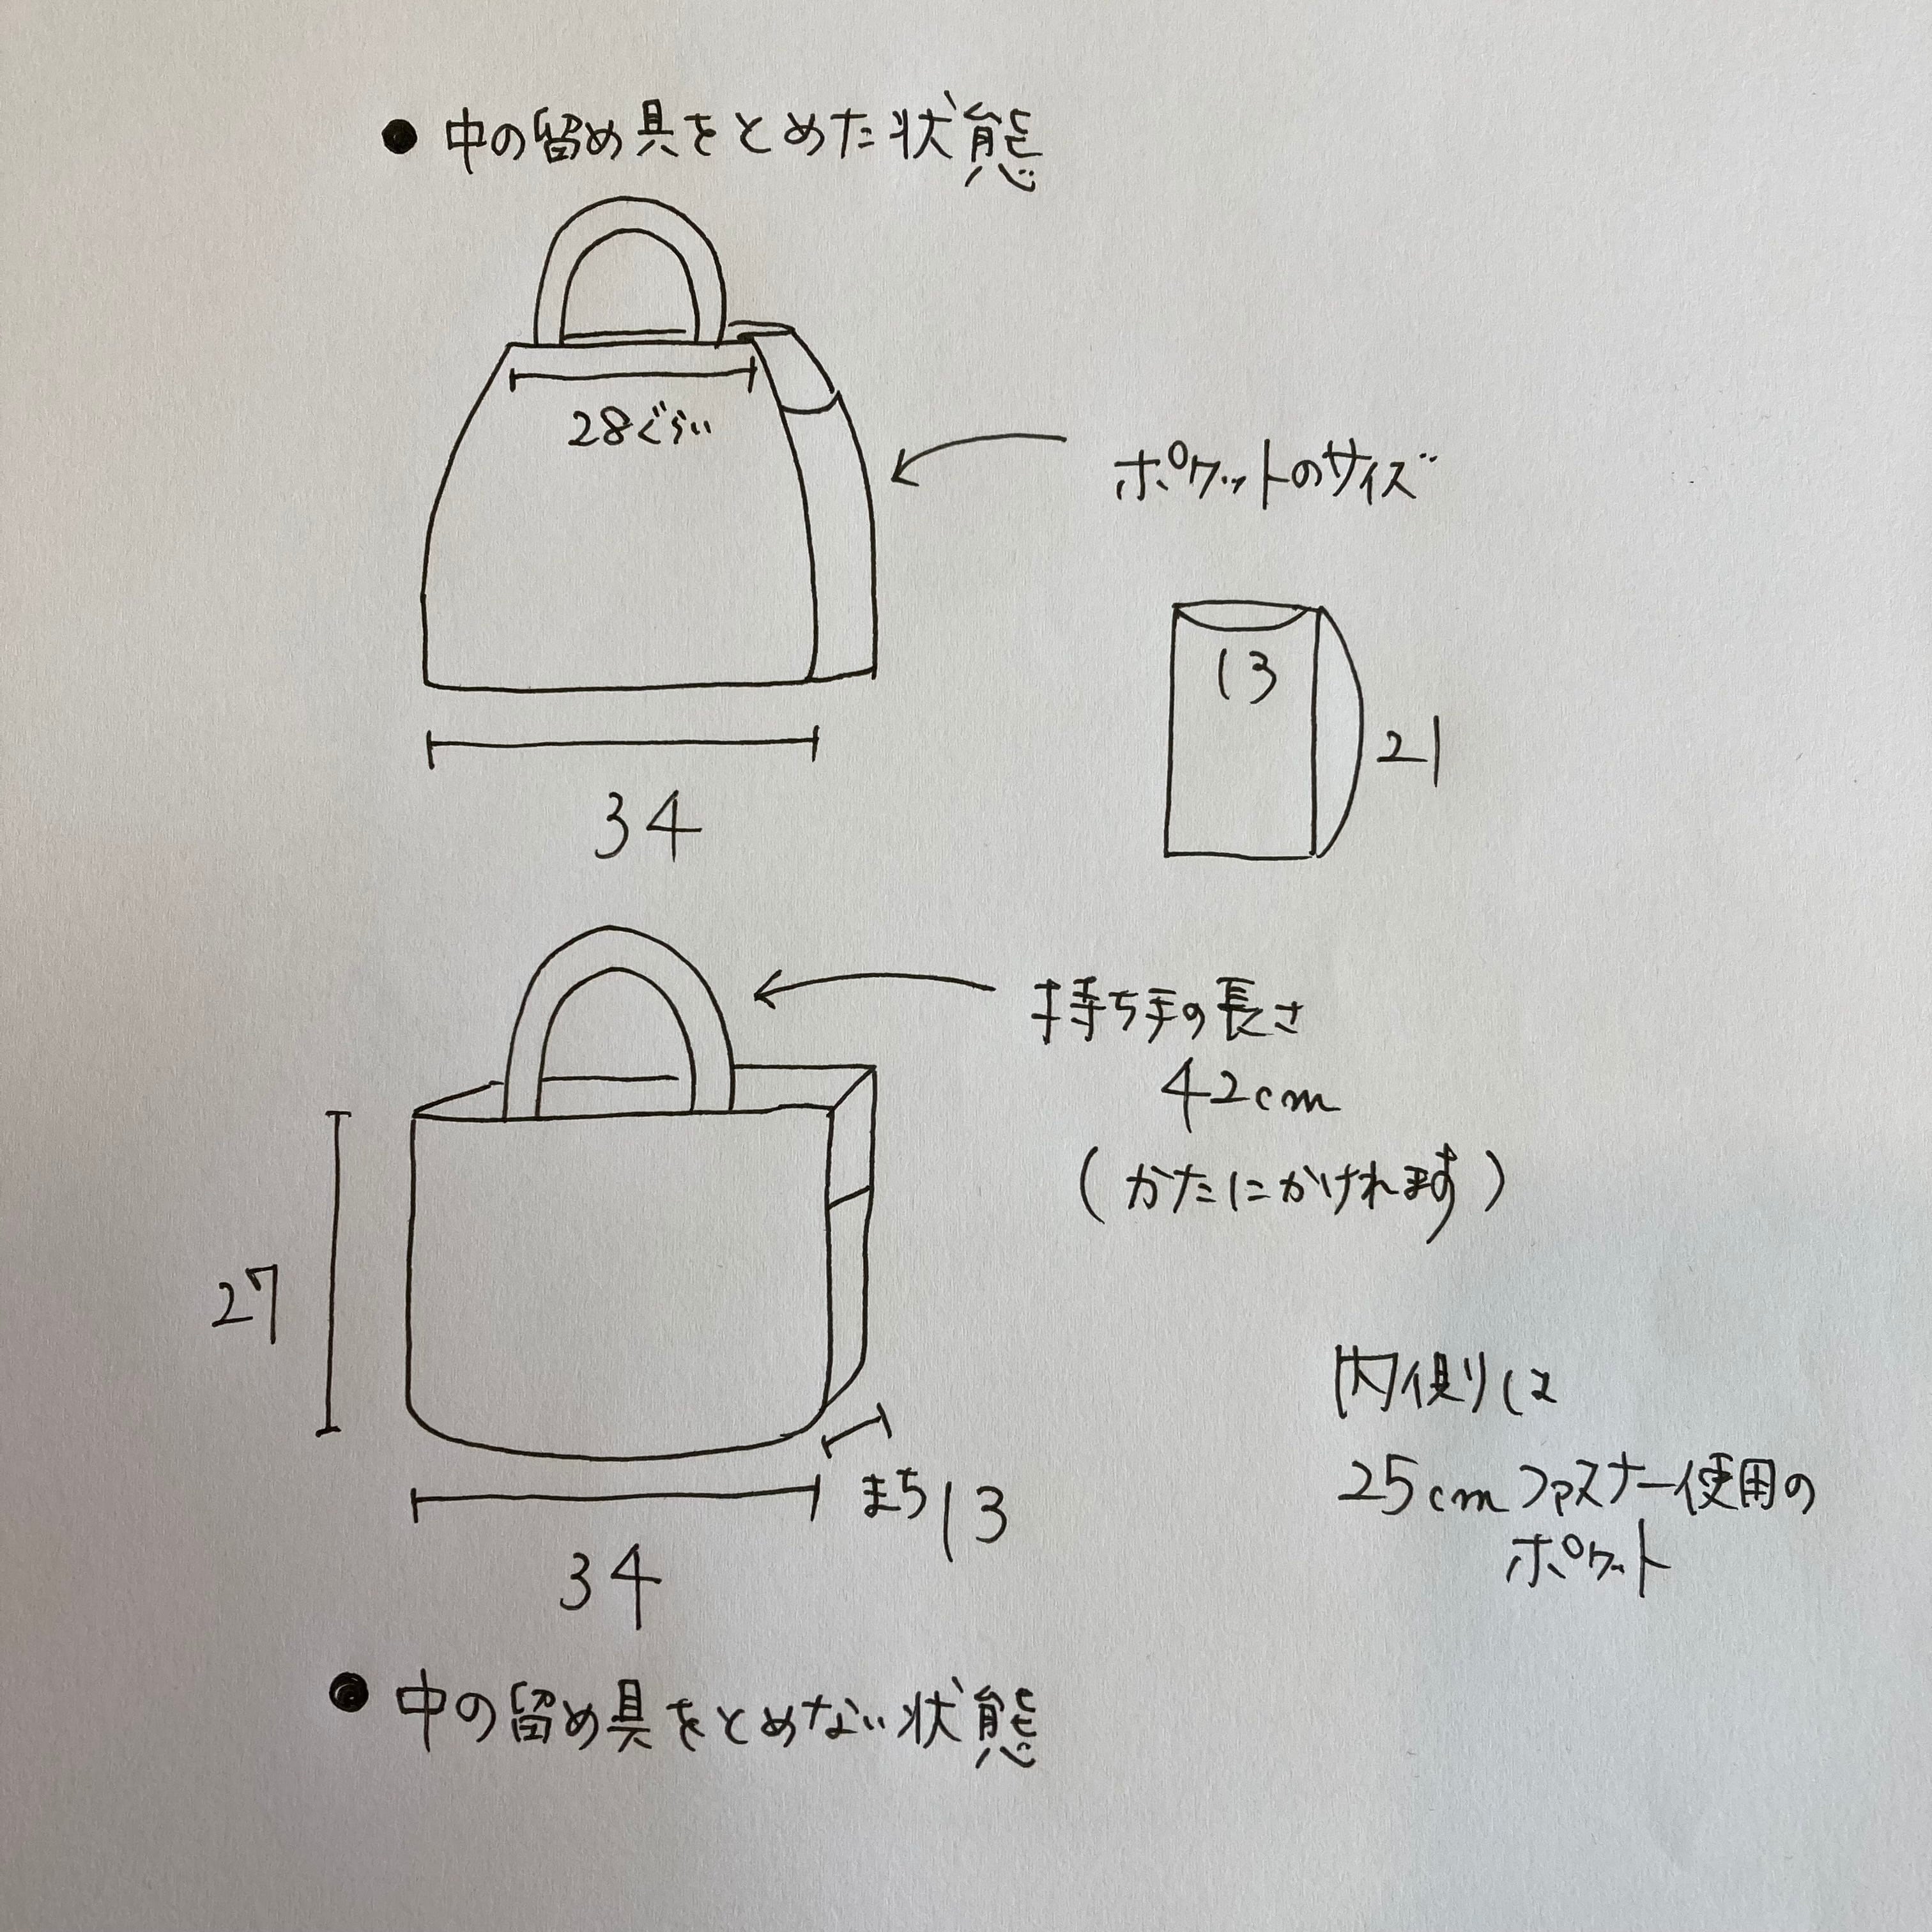 ● 中の留め具をとめた状態
28ぐらい
ポケットのサイズ
13
21
34
持ち手の長さ
42cm
(かたにかけれます)
27
内側は
25cmファスナー使用の
ポケット
まち13
34
● 中の留め具をとめない状態